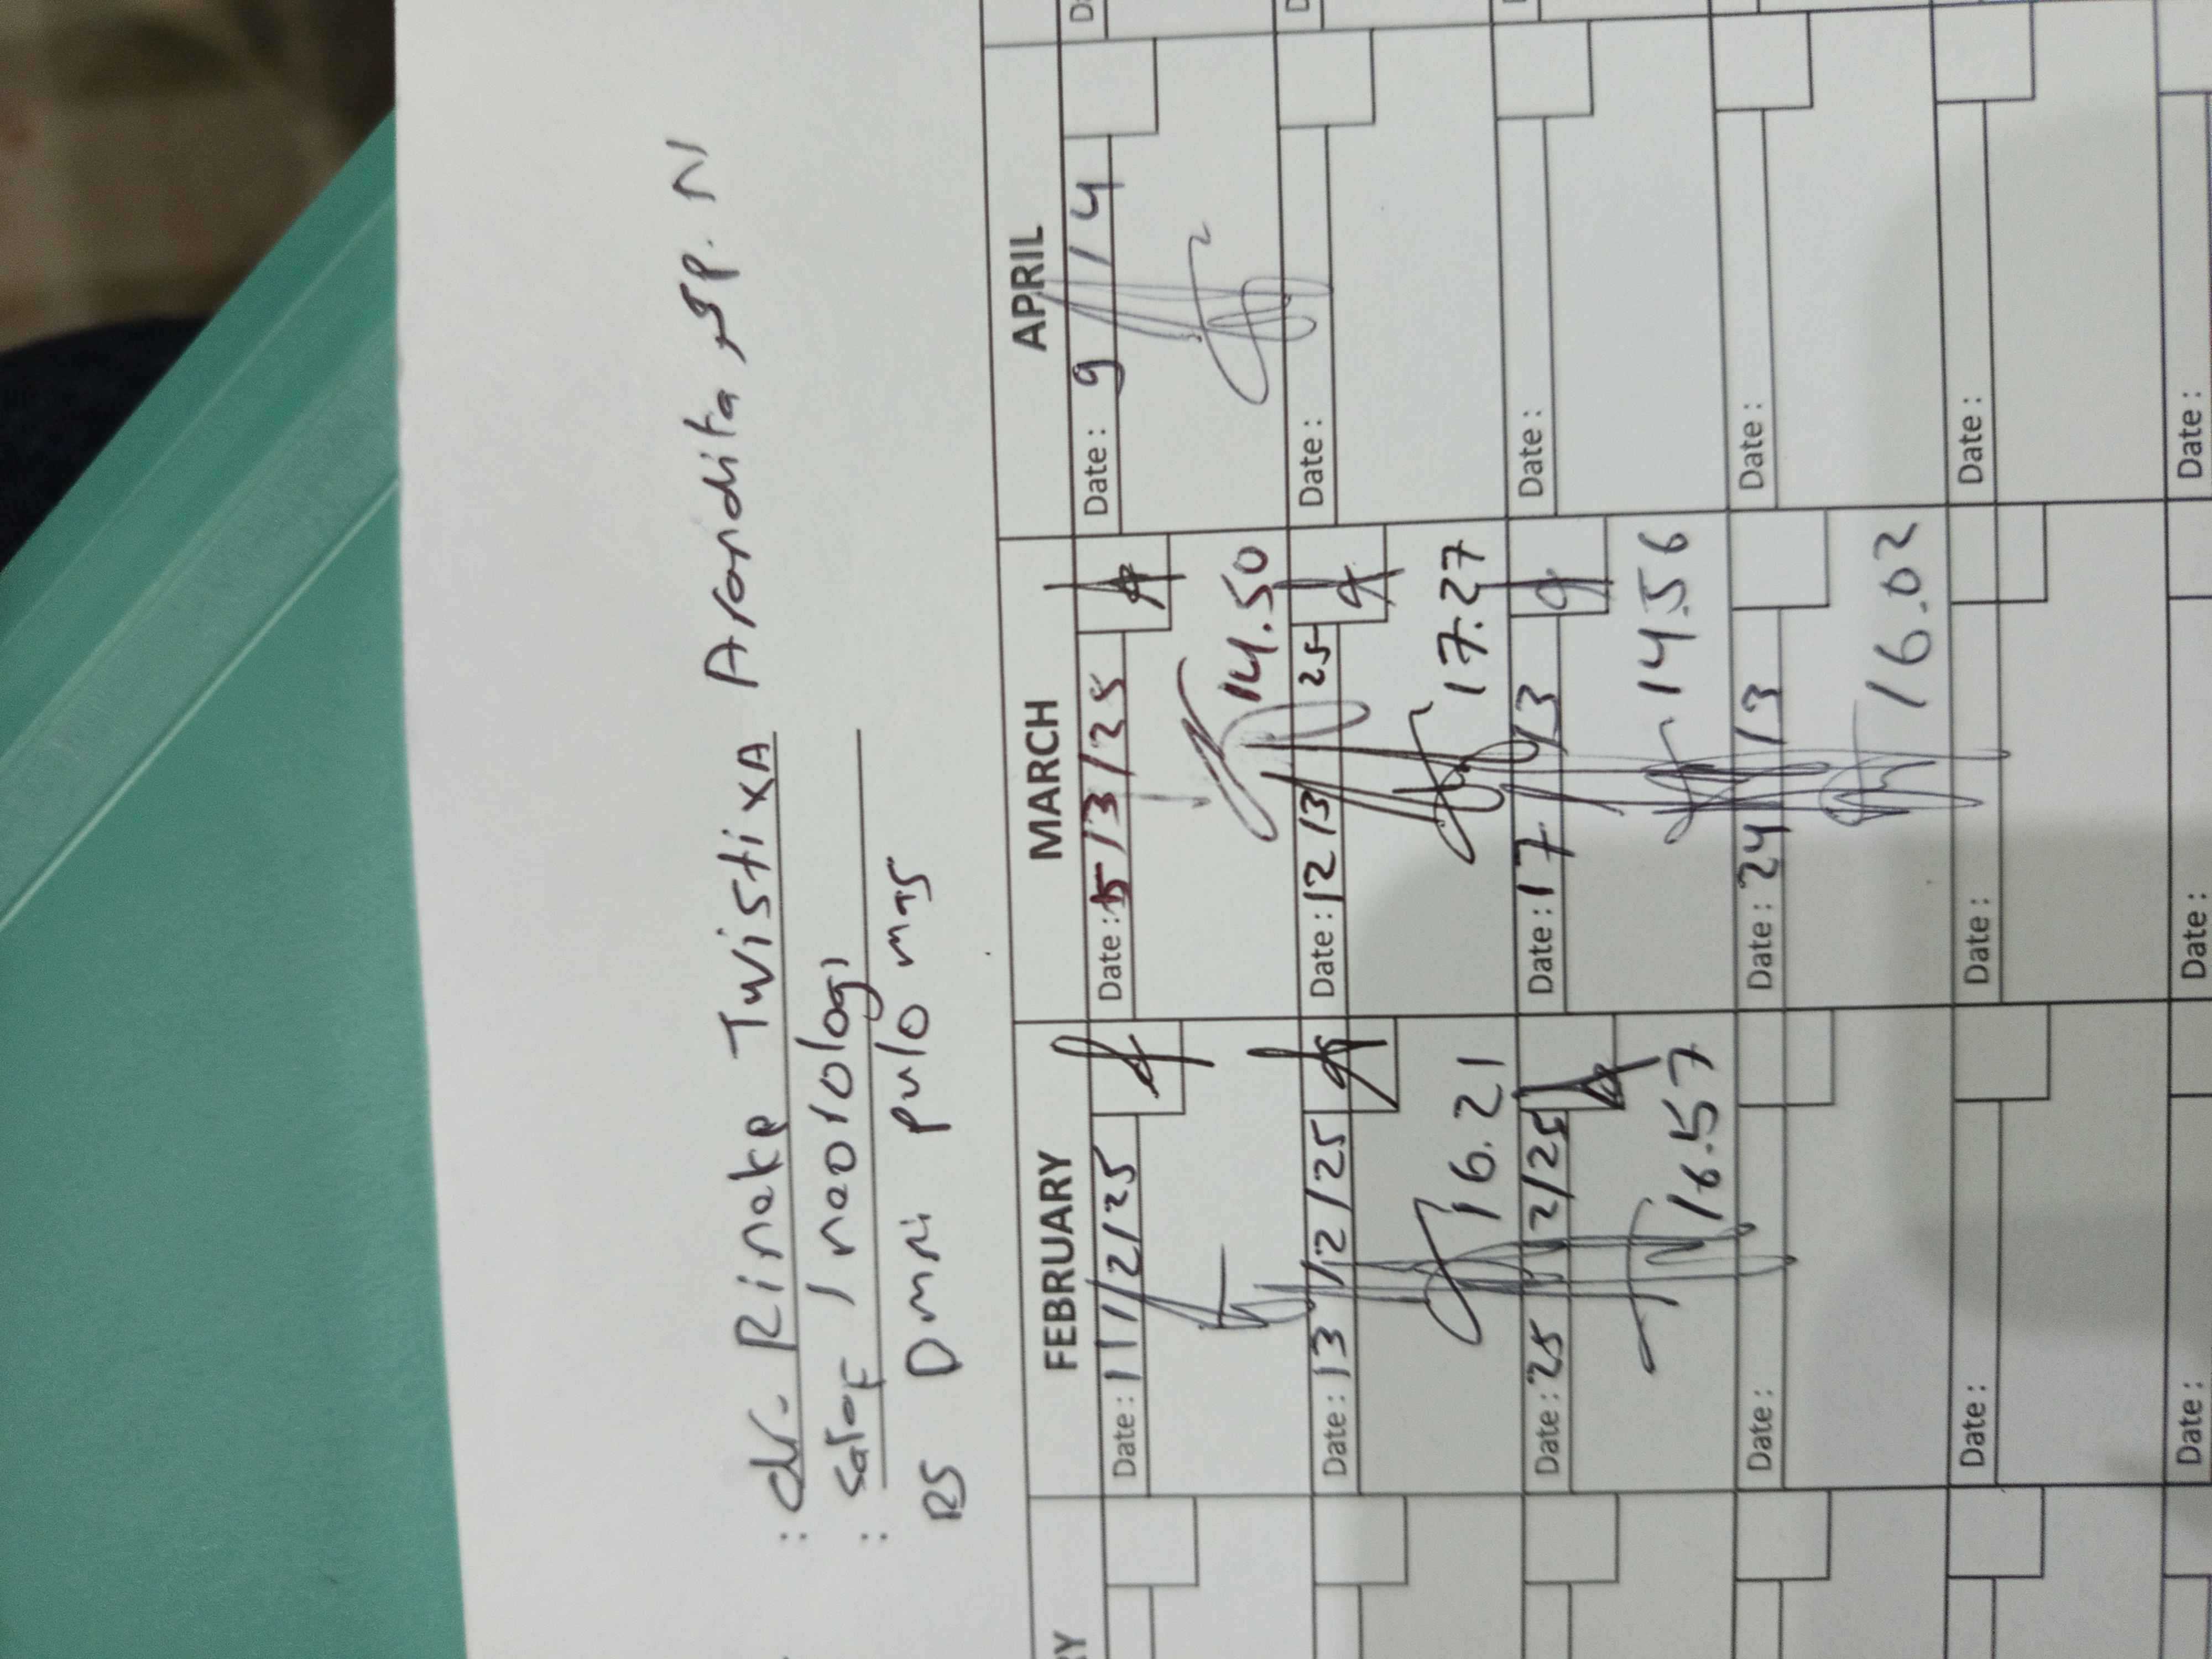 : dr. Rinake Twistixa Arandita, Sp. N
: Saraf / neorologi
RS Dmni pulo mas
RY FEBRUARY MARCH APRIL
Date: 11/2/25 Date: 5/3/25 Date: 9/4
14.50
Date: 13/2/25 Date: 12/3 25 Date:
16.21 17.27
Date: 25 2/25 Date: 17/3 Date:
16.57 14.56
Date: Date: 24/3 Date:
16.02
Date: Date: Date:
Date: Date: Date: